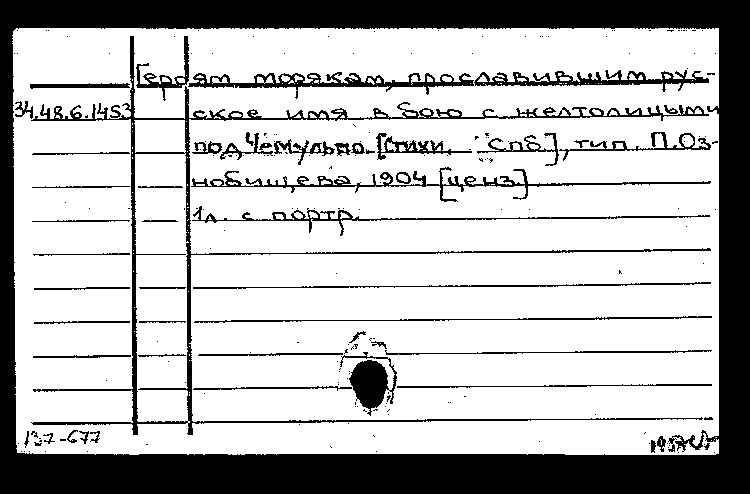 Героям морякам, прославившим рус-
34.48.6.1453 ское имя в бою с желтолицыми
под Чемульпо. [Стихи. Спб], тип. П.Оз-
нобищева, 1904 [ценз.]
1л. с портр.
137-677